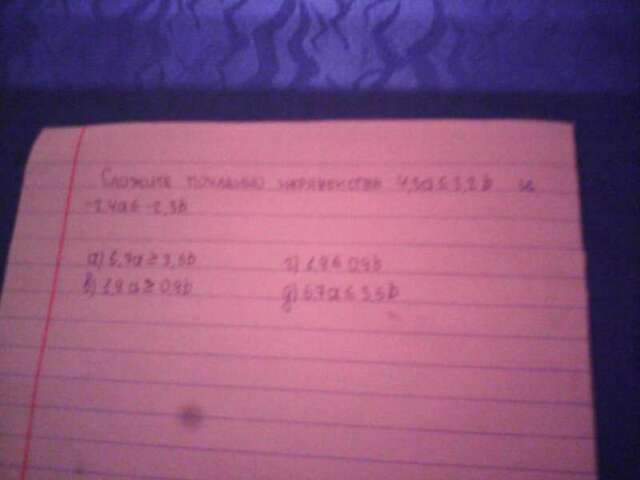 Сложите почленно неравенства 4,3a ≤ 3,2b и
-2,4a ≤ -2,3b
а) 6,7a ≥ 5,5b г) 1,9 ≤ 0,9b
в) 1,9a ≥ 0,9b д) 6,7a ≤ 5,5b